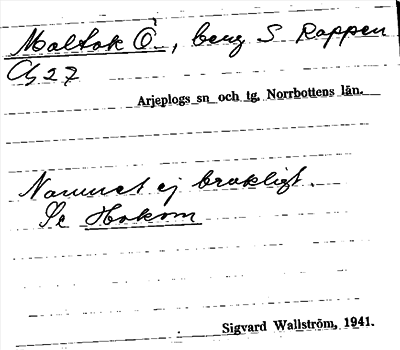 Maltok Ö., berg S Rappen
Cg 27
Arjeplogs sn och tg. Norrbottens län.
Namnet ej brukligt.
Se Hokom
Sigvard Wallström, 1941.